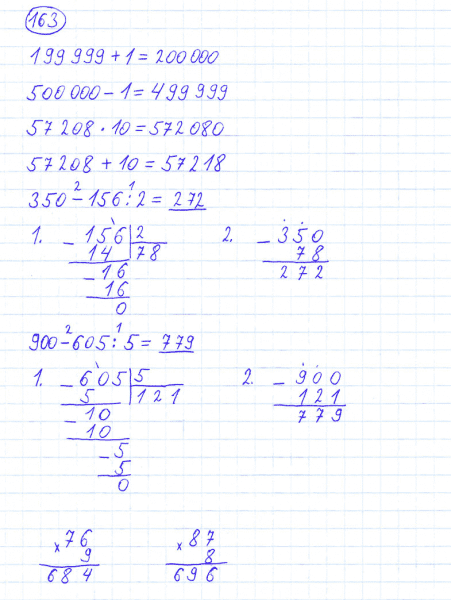 163
199 999 + 1 = 200 000
500 000 - 1 = 499 999
57 208 · 10 = 572 080
57 208 + 10 = 57 218
2 1
350 - 156 : 2 = 272
1. - 156 | 2 2. - 350
14 | 78 78
- 16 272
16
0
2 1
900 - 605 : 5 = 779
1. - 605 | 5 2. - 900
5 | 121 121
- 10 779
10
- 5
5
0
× 76 × 87
9 8
684 696